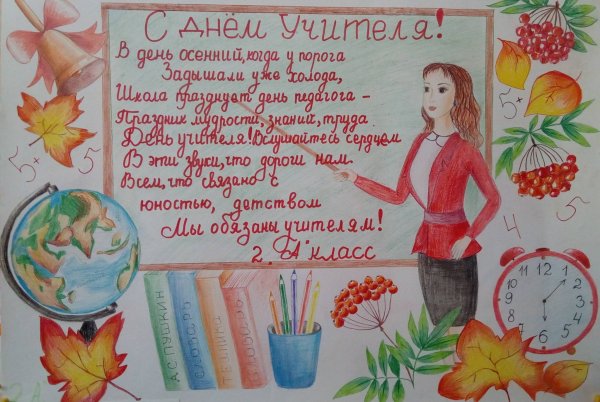 С Днём Учителя!
В день осенний, когда у порога
Задышали уже холода,
Школа празднует день педагога –
Праздник мудрости, знаний, труда.
День учителя! Вслушайтесь сердцем
В эти звуки, что дороги нам.
Всем, что связано с
юностью, детством
Мы обязаны учителям!
2 „А" класс
5+
5
5+
5
4
А.С.ПУШКИН
СЛОВАРЬ
11 12 1
10 2
9 3
8 4
7 6 5